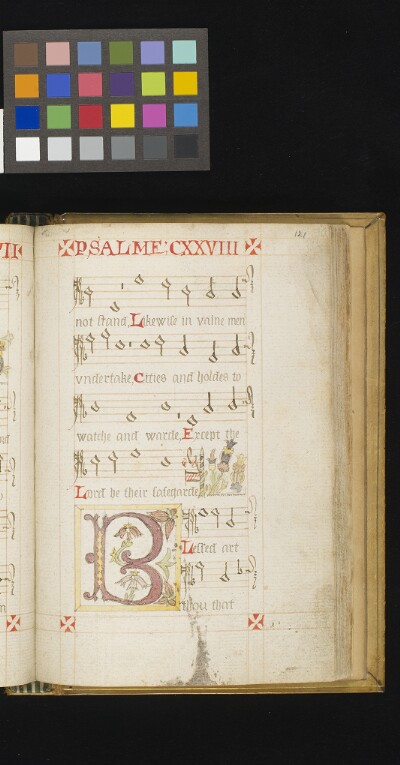 VII
PSALME: CXXVIII
121
not stand, Likewise in vaine men
vndertake, Citties and holdes to
watche and warde, Except the
Lord be their safegarde
Blessed art
thou that